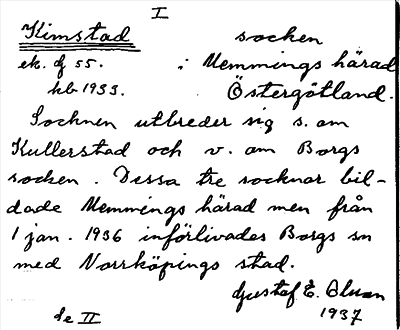 I
Kimstad socken
ek. bl 55. i Memmings härad
hb 1933. Östergötland.
Socknen utbreder sig s. om
Kullerstad och v. om Borgs
socken. Dessa tre socknar bil-
dade Memmings härad men från
1 jan. 1936 införlivades Borgs sn
med Norrköpings stad.
Gustaf E. Olsson
1937
se II